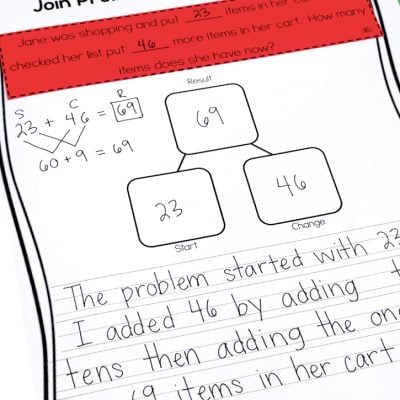 Join Pr
Jane was shopping and put 23 items in her ca
checked her list put 46 more items in her cart. How many
items does she have now?
Result
S C R
23 + 46 = 69
60 + 9 = 69
69
23
46
Start
Change
The problem started with 23
I added 46 by adding t
tens then adding the on
69 items in her cart